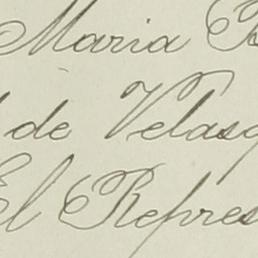 Maria
de Velasq
El Repres